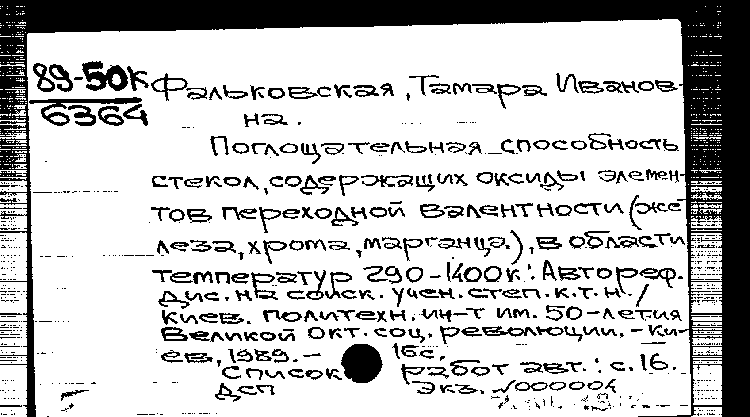 89-50к
6364
Фальковская, Тамара Иванов-
на.
Поглощательная способность
стекол, содержащих оксиды элемен-
тов переходной валентности (же-
леза, хрома, марганца), в области
температур 290-1400к: Автореф.
дис. на соиск. учен. степ. к.т.н. /
Киев. политехн. ин-т им. 50-летия
Великой Окт. соц. революции. - Ки-
ев, 1989. - 16с.
Список работ авт.: с. 16.
ДСП Экз. №000004